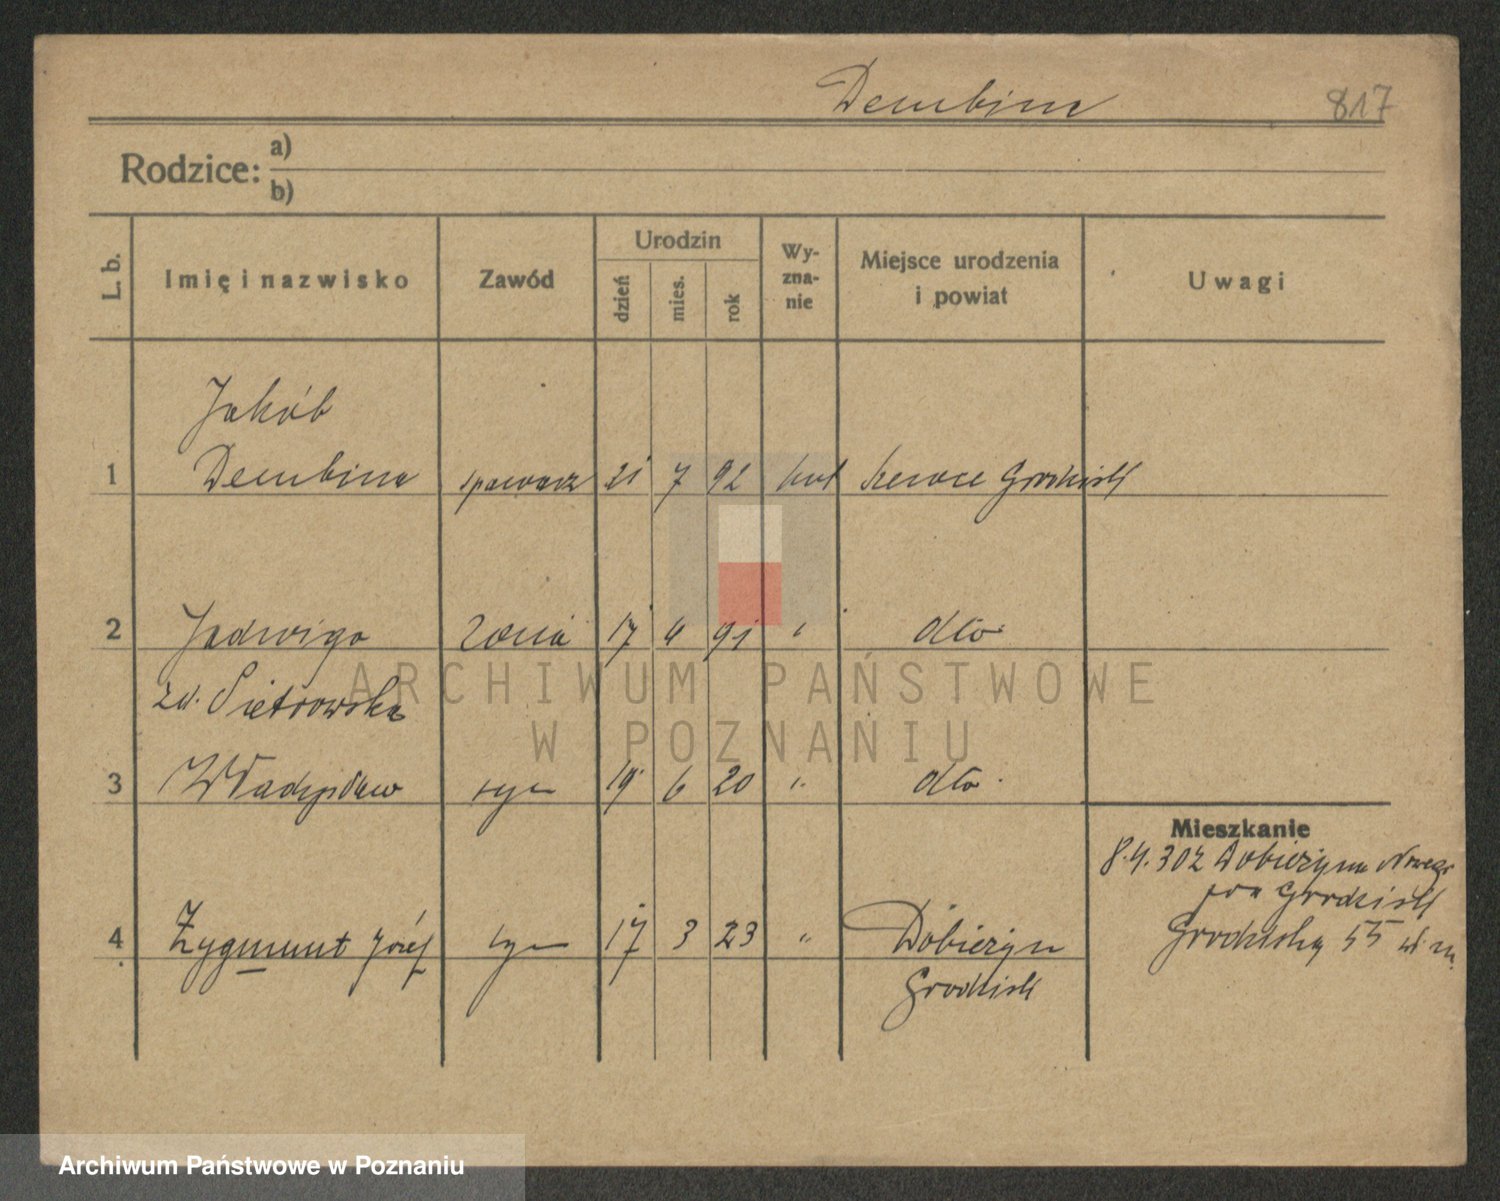 Dembina 817
Rodzice: a)
b)
L. b. Imię i nazwisko Zawód Urodzin dzień mies. rok Wy-zna-nie Miejsce urodzenia i powiat Uwagi
Jakób
1 Dembina 21 7 92 kat Grodzisk
2 Jadwiga żona 17 4 91 " dto
zd. Pietrowska
3 Władysław syn 19 6 20 " dto
Mieszkanie
8.4.30 z Dobieżyna
Grodzisk
4 Zygmunt Józef syn 17 3 23 " Dobieżyn
Grodziska 55
Grodzisk
ARCHIWUM PAŃSTWOWE
W POZNANIU
Archiwum Państwowe w Poznaniu